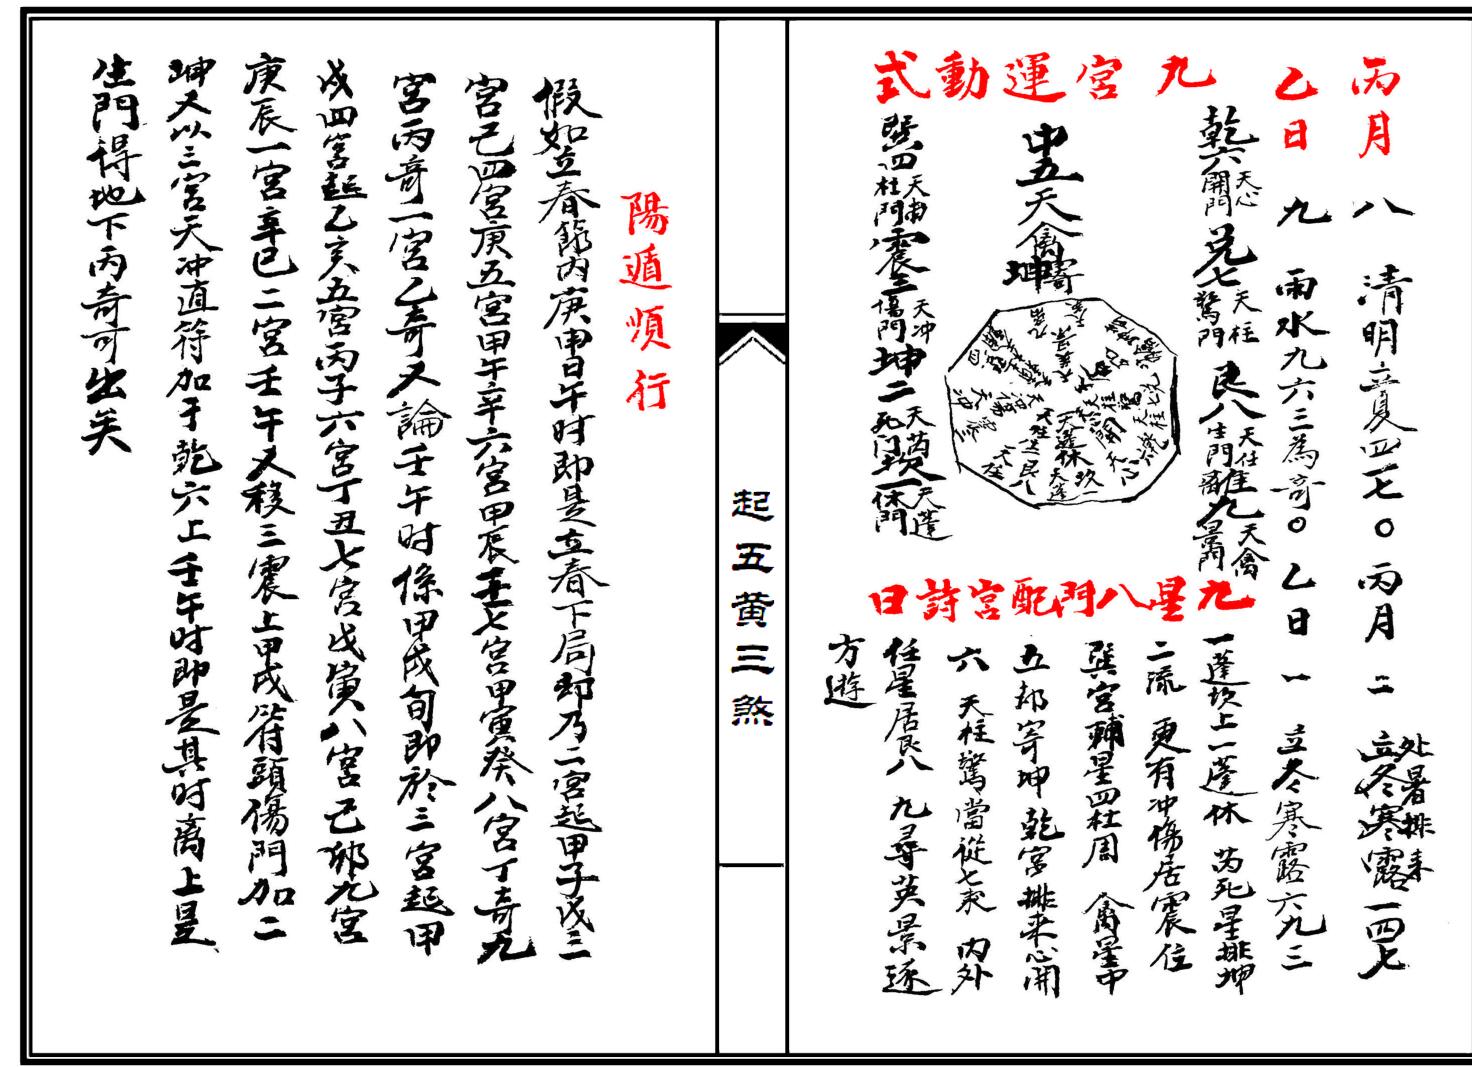 丙月 八 清明立夏四一七〇丙月 二 立冬寒露一四七
處暑排來
乙日 九 雨水九六三為奇〇乙日 一 立冬寒露六九三
九宮運動式
乾六開門天心 兌七驚門天柱 艮八生門天任 離九景門天禽
中五天禽寄坤
巽四杜門天輔 震三傷門天冲 坤二死門天芮 坎一休門天蓬
九星八門配宮詩曰
一蓬坎上一蓬休 芮死星排坤
二流 更有冲傷居震位
巽宮輔星四杜周 禽星中
五都寄坤 乾宮排來心開
六 天柱驚當從七求 內外
任星居艮八 九尋英景逐
方遊
起五黃三煞
陽遁順行
假如立春節內庚申日午时即是立春下局即乃二宮起甲子戊三
宮己四宮庚五宮甲午辛六宮甲辰壬七宮甲寅癸八宮丁奇九
宮丙奇一宮乙奇又論壬午时係甲戌旬即於三宮起甲
戌四宮起乙亥五宮丙子六宮丁丑七宮戊寅八宮己卯九宮
庚辰一宮辛巳二宮壬午又移三震上甲戌符頭傷門加二
坤又以三宮天冲直符加于乾六上壬午时即是其时离上是
生門得地下丙奇可出矣